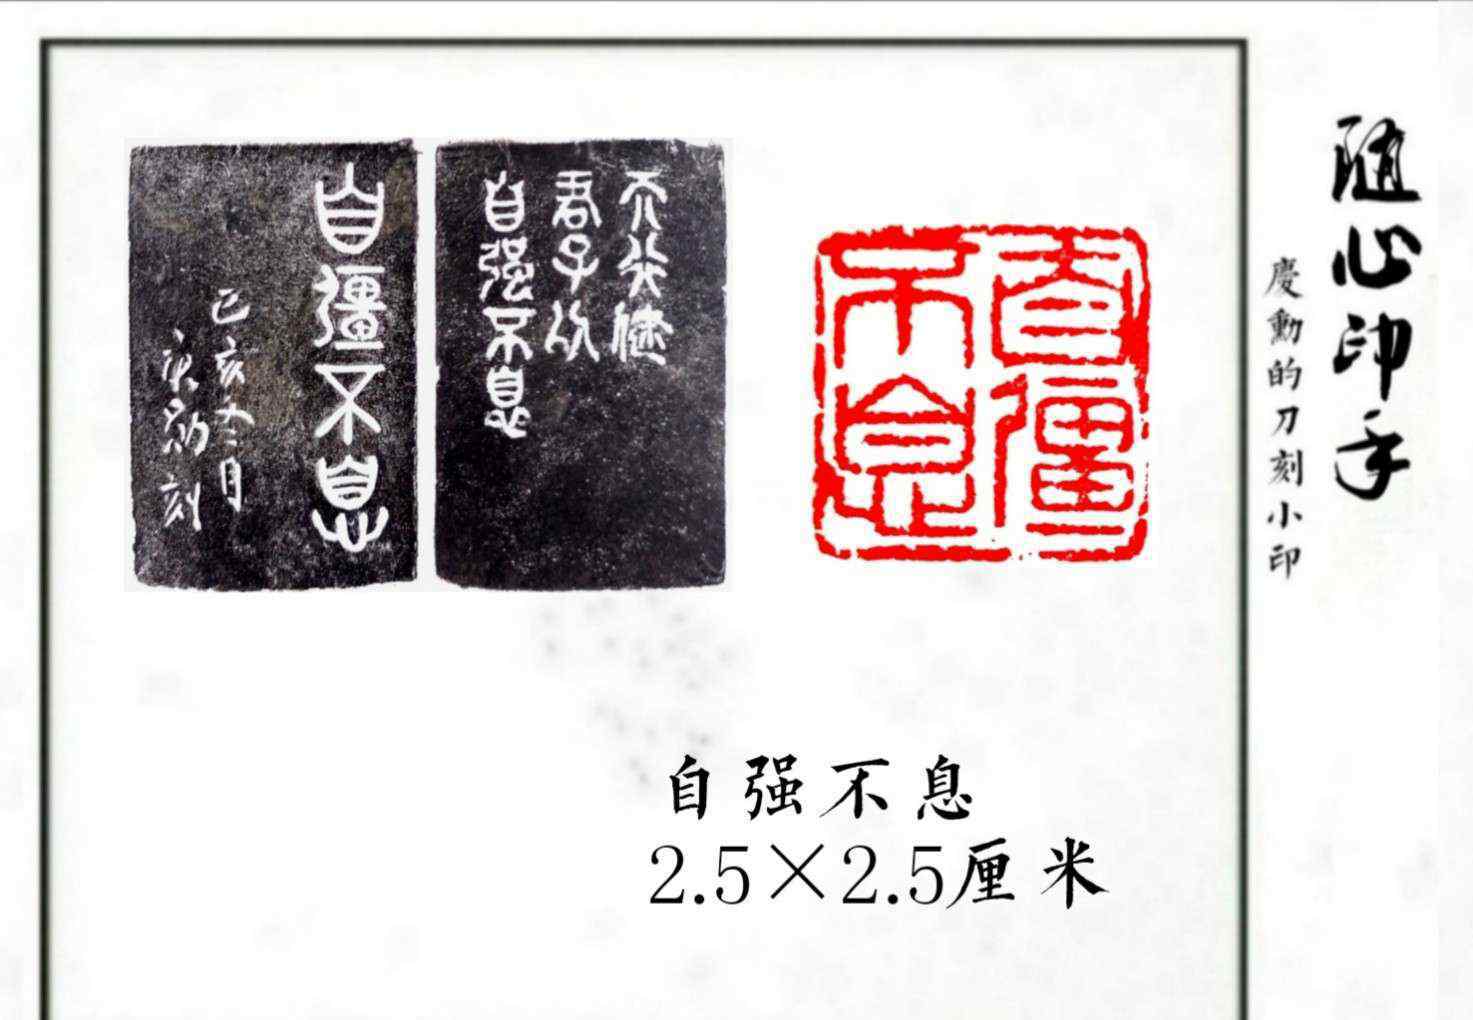 随心印手
慶勳的刀刻小印
自彊不息
天行健
君子以
自强不息
自彊不息
己亥冬月
庆勋刻
自强不息
2.5×2.5厘米